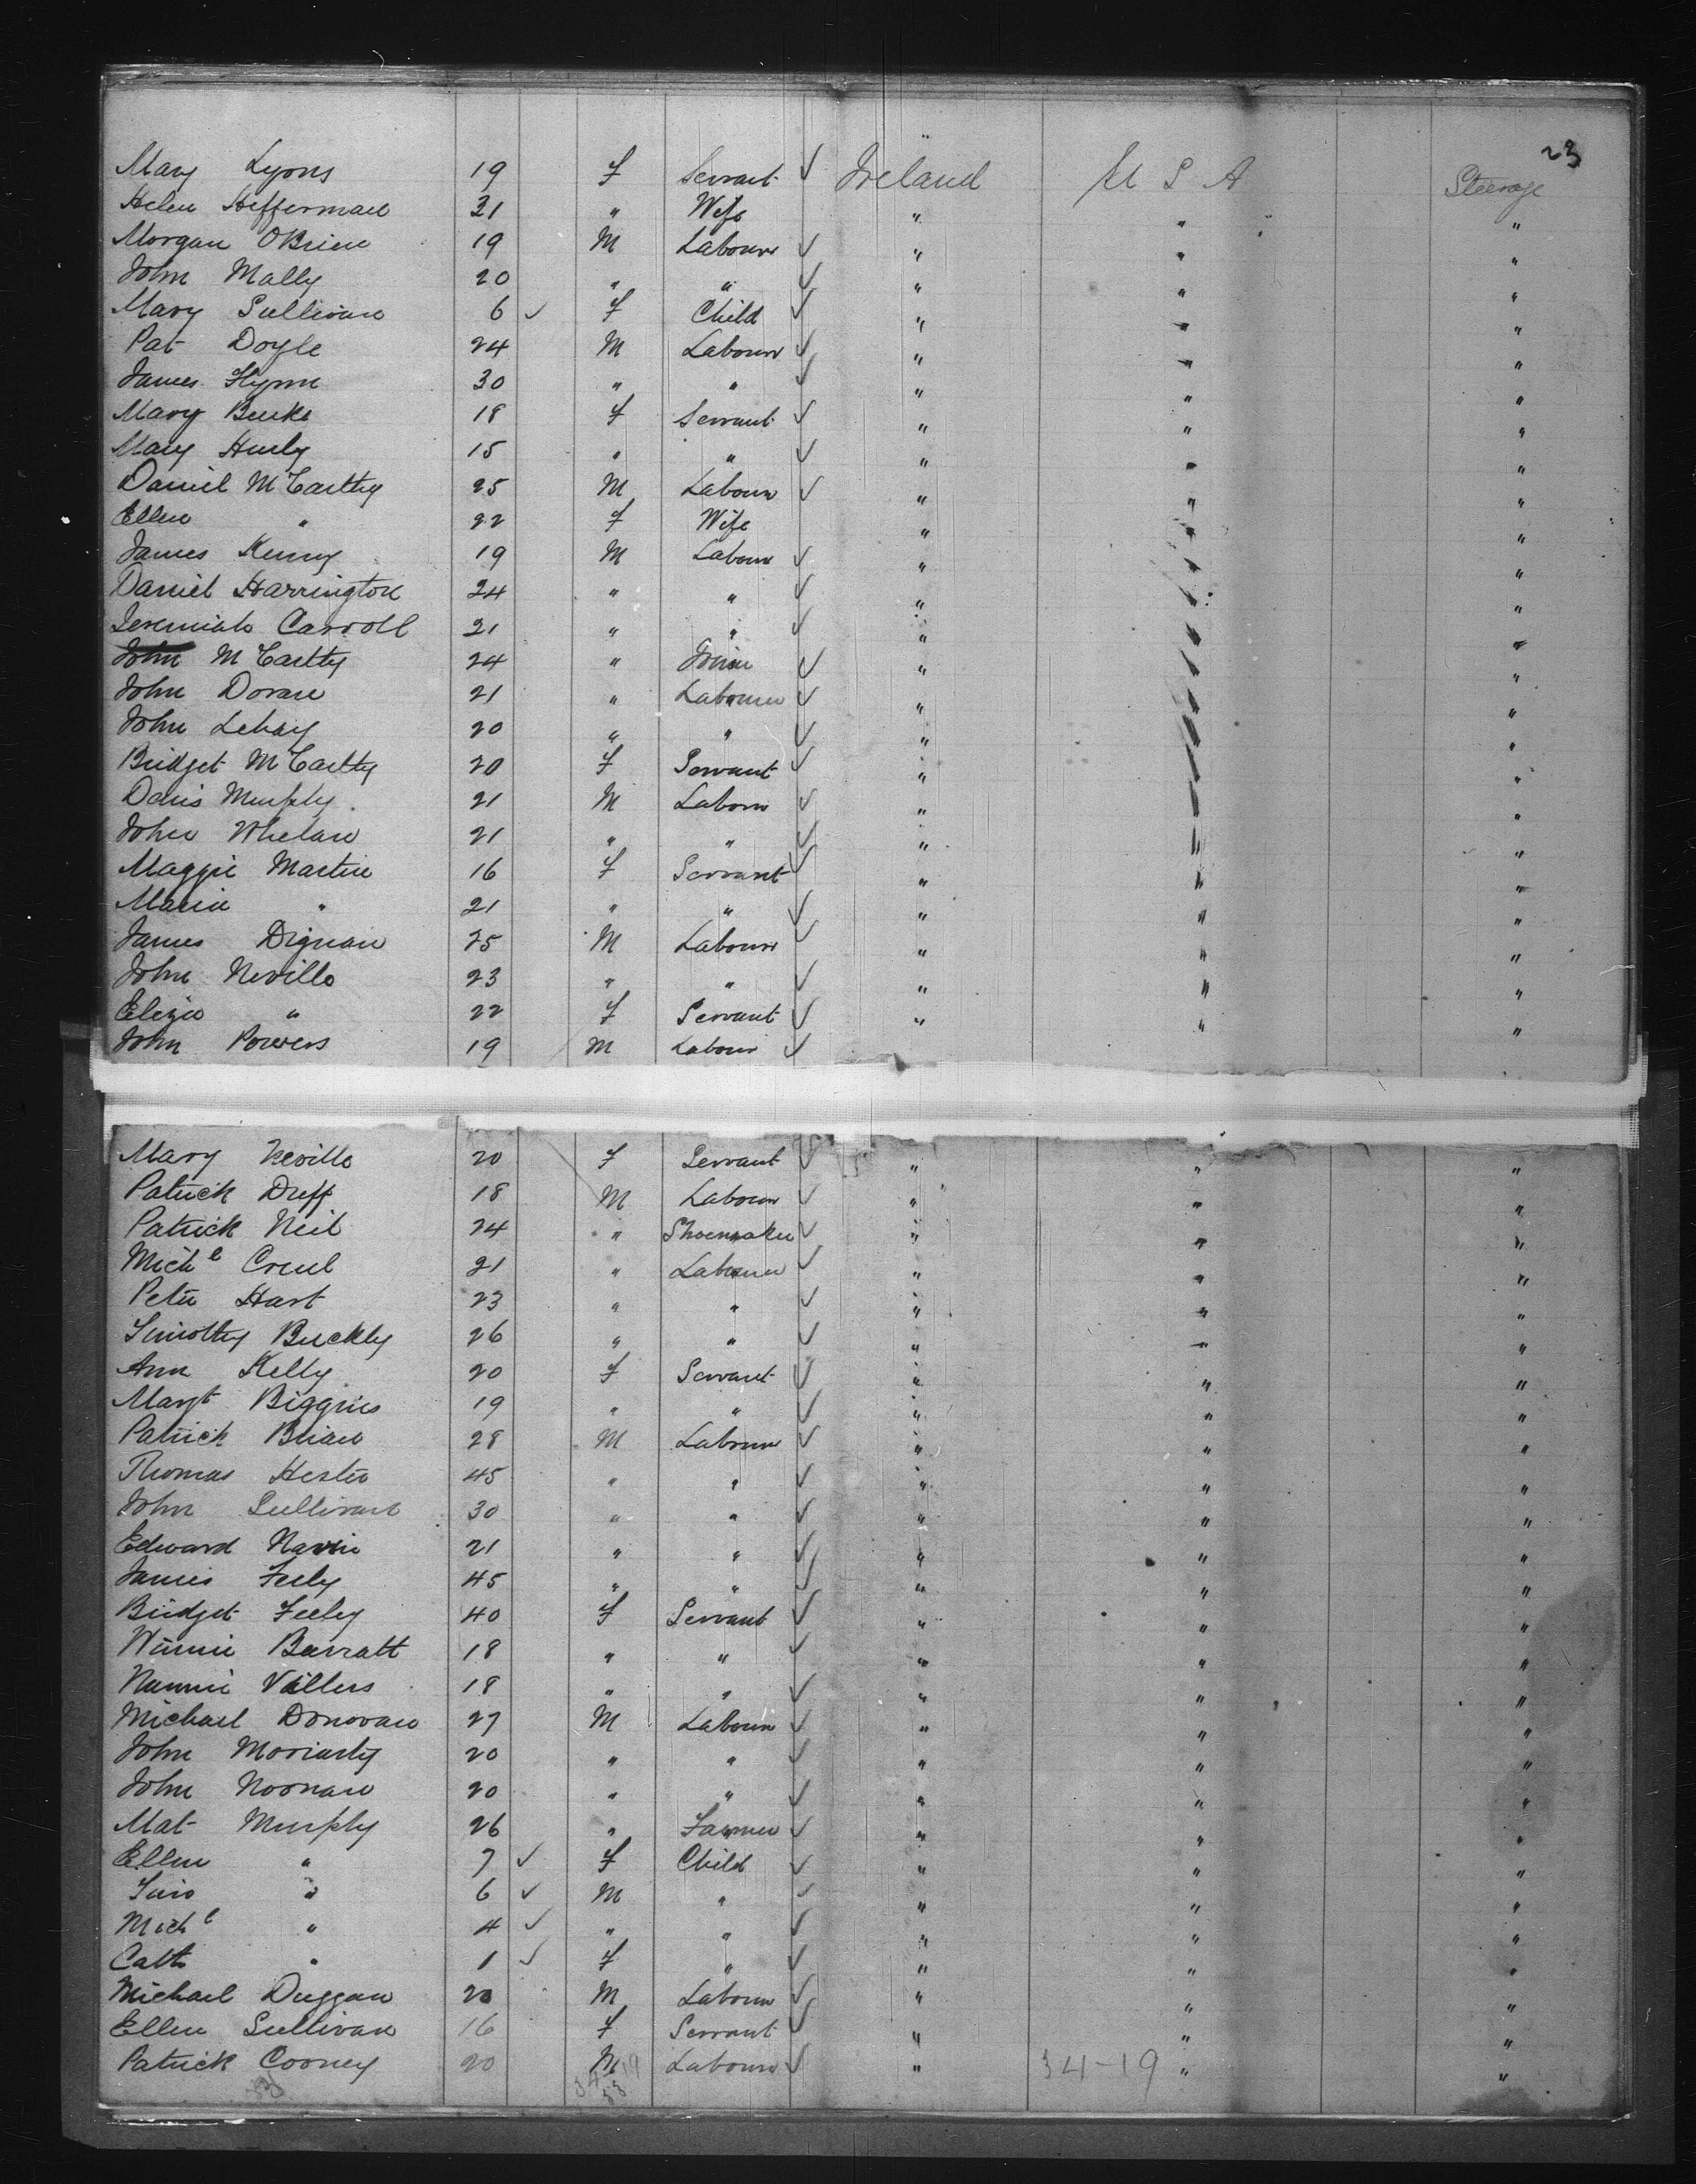 23
Mary Lyons 19 F Servant ✓ Ireland U S A Steerage
Helen Hefferman 31 " Wife " " "
Morgan OBrien 19 M Labourer ✓ " " "
John Mally 20 " " ✓ " " "
Mary Sullivan 6 ✓ F Child ✓ " " "
Pat Doyle 24 M Labourer ✓ " " "
James Flynn 30 " " ✓ " " "
Mary Burke 18 F Servant ✓ " " "
Mary Hurly 15 " " ✓ " " "
Daniel McCarthy 25 M Labour ✓ " " "
Ellen " 22 F Wife " " "
James Kenny 19 M Labour ✓ " " "
Daniel Harrington 24 " " ✓ " " "
Jeremiah Carroll 21 " " ✓ " " "
John McCarthy 24 " ✓ " " "
John Doran 21 " Labourer ✓ " " "
John Lehay 20 " " ✓ " " "
Bridget McCarthy 20 F Servant ✓ " " "
Denis Murphy 21 M Labour ✓ " " "
John Whelan 21 " " ✓ " " "
Maggie Martin 16 F Servant ✓ " " "
Maria " 21 " " ✓ " " "
James Dignan 25 M Labourer ✓ " " "
John Neville 23 " " ✓ " " "
Eliza " 22 F Servant ✓ " " "
John Powers 19 M Labour ✓
Mary Neville 20 F Servant ✓ " " "
Patrick Duff 18 M Labour ✓ " " "
Patrick Neil 24 " Shoemaker ✓ " " "
Michl 21 " Labourer ✓ " " "
Peter Hart 23 " " ✓ " " "
Timothy Buckly 26 " " ✓ " " "
Ann Kelly 20 F Servant ✓ " " "
Margt Biggins 19 " " ✓ " " "
Patrick Brian 28 M Labour ✓ " " "
Thomas Hester 45 " " ✓ " " "
John Sullivan 30 " " ✓ " " "
Edward Navin 21 " " ✓ " " "
James Feely 45 " " ✓ " " "
Bridget Feeley 40 F Servant ✓ " " "
Winnie Barratt 18 " " ✓ " " "
Nannie Villers 18 " " ✓ " " "
Michael Donovan 27 M Labour ✓ " " "
John Moriarty 20 " " ✓ " " "
John Noonan 20 " " ✓ " " "
Mat Murphy 26 " Farmer ✓ " " "
Ellen " 7 ✓ F Child ✓ " " "
" 6 ✓ M " ✓ " " "
Michl " 4 ✓ " " ✓ " " "
Cath " 1 ✓ F " ✓ " " "
Michael Duggan 20 M Labour ✓ " " "
Ellen Sullivan 16 F Servant ✓ " " "
Patrick Cooney 20 M Labour ✓ " 34-19 " "
53 34 19
53